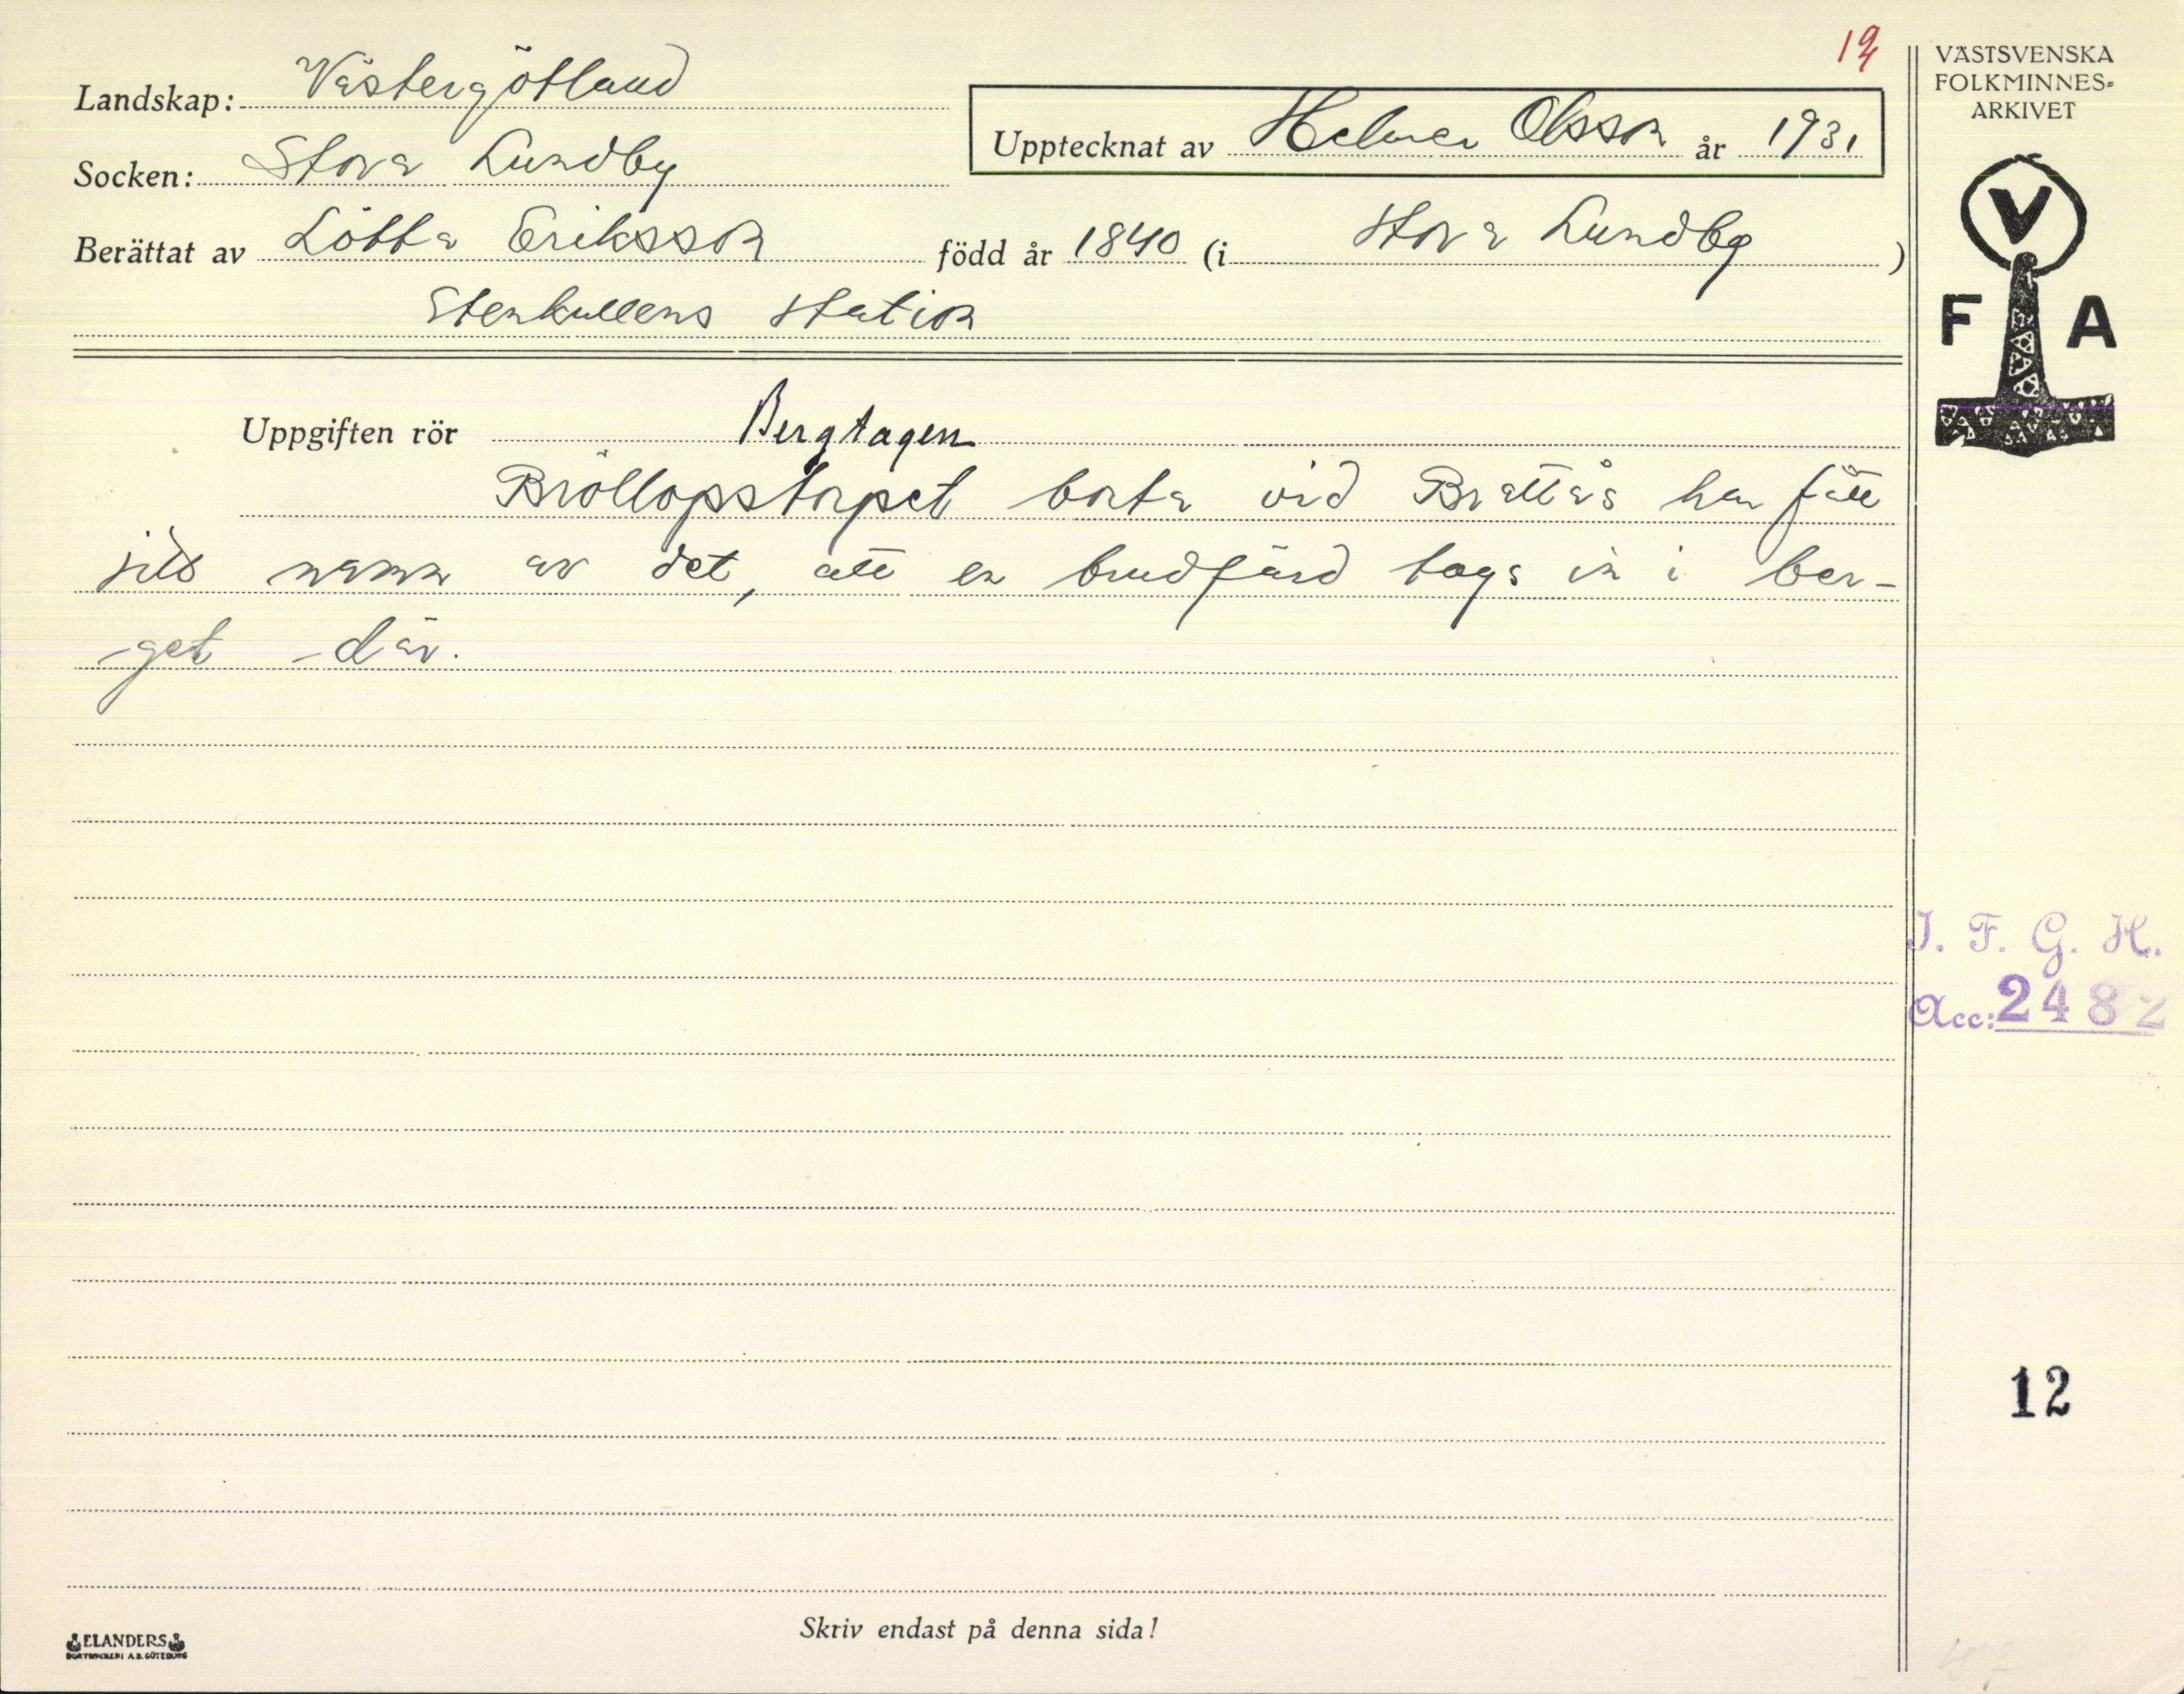 12
VÄSTSVENSKA
FOLKMINNES-
ARKIVET
Landskap: Västergötland
Upptecknat av Helmer Olsson år 1931
Socken: Stora Lundby
Berättat av Lotta Eriksson född år 1840 (i Stora Lundby )
Stenkullens station
V
F A
Uppgiften rör Bergtagen
Bröllopstorpet borta vid Brattås har fått
sitt namn av det, att en brudfärd togs in i ber-
get där.
I. F. G. H.
Acc: 2482
12
Skriv endast på denna sida!
ELANDERS
BOKTRYCKERI A.B. GÖTEBORG